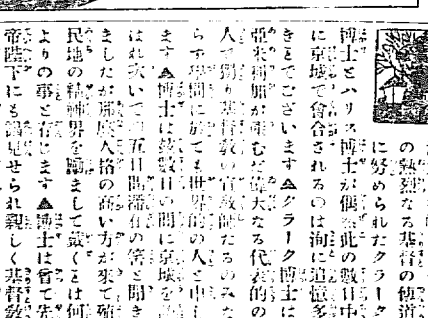 の熱烈なる基督の傳道
に努められたクラーク
博士とハリス博士が偶然此の數日中
に京城で會合されるのは洵に追憶多
きとでございます▲クラーク博士は
亞米利加が産むだ偉大なる代表的の
人で獨り基督敎の宣敎師たるのみな
らず學問に於ても世界的の人と申し
ます▲博士は玆數日の間に京城を
はれ次いで 五日間滯在の筈と聞き
ましたが那麽人格の高い方が來て
民地の精神界を勵まして戴くとは何
よりの事と存じます▲博士は曾て先
帝陛下にも謁見せられ親しく基督敎